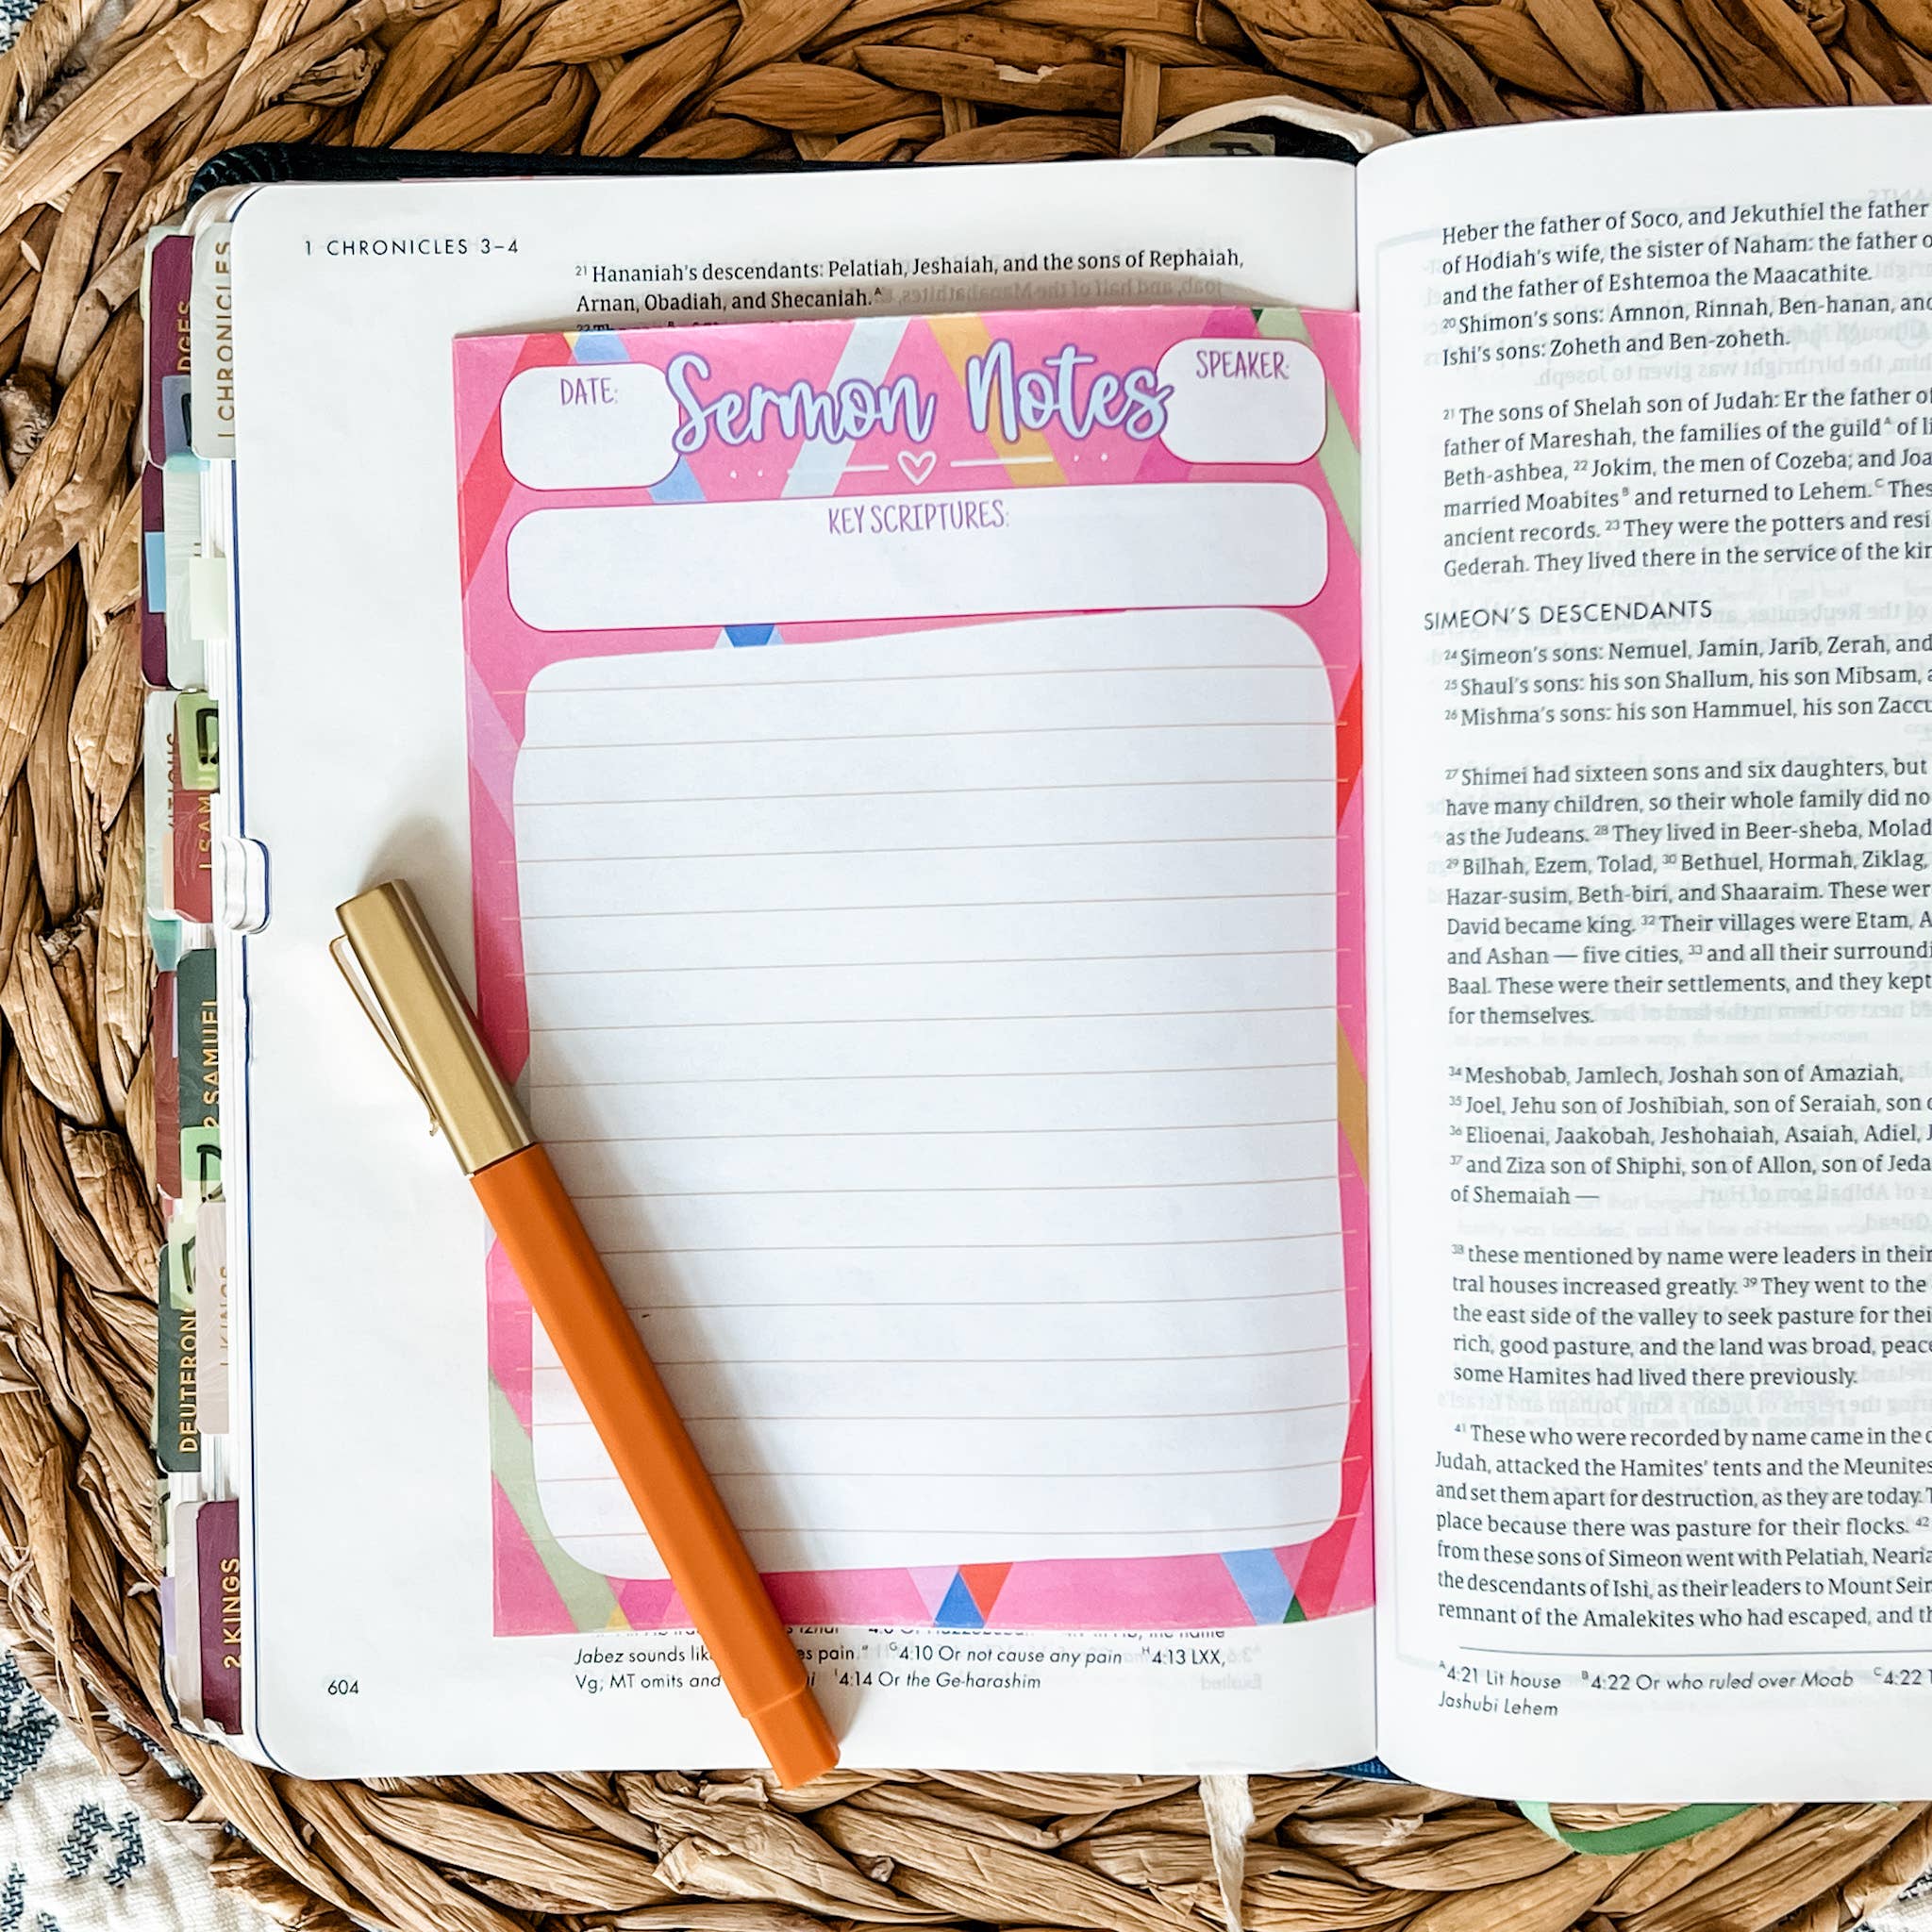 1 CHRONICLES 3–4
21 Hananiah's descendants: Pelatiah, Jeshaiah, and the sons of Rephaiah,
Arnan, Obadiah, and Shecaniah.A
DATE:
Sermon Notes
SPEAKER:
KEY SCRIPTURES:
Jabez sounds pain." G4:10 Or not cause any pain H4:13 LXX,
Vg; MT omits and I4:14 Or the Ge-harashim
604
I CHRONICLES
I SAM
2 SAMUEL
KINGS
DEUTERON
2 KINGS
Heber the father of Soco, and Jekuthiel the father
of Hodiah's wife, the sister of Naham: the father
and the father of Eshtemoa the Maacathite.
20 Shimon's sons: Amnon, Rinnah, Ben-hanan, and
Ishi's sons: Zoheth and Ben-zoheth.
21 The sons of Shelah son of Judah: Er the father of
father of Mareshah, the families of the guildA of
Beth-ashbea, 22 Jokim, the men of Cozeba; and
married MoabitesB and returned to Lehem.C
ancient records. 23 They were the potters and
Gederah. They lived there in the service of the
SIMEON'S DESCENDANTS
24 Simeon's sons: Nemuel, Jamin, Jarib, Zerah, and
25 Shaul's sons: his son Shallum, his son Mibsam,
26 Mishma's sons: his son Hammuel, his son
27 Shimei had sixteen sons and six daughters, but
have many children, so their whole family did
as the Judeans. 28 They lived in Beer-sheba,
29 Bilhah, Ezem, Tolad, 30 Bethuel, Hormah, Ziklag,
Hazar-susim, Beth-biri, and Shaaraim. These
David became king. 32 Their villages were Etam,
and Ashan — five cities, 33 and all their
Baal. These were their settlements, and they kept
for themselves.
34 Meshobab, Jamlech, Joshah son of Amaziah,
35 Joel, Jehu son of Joshibiah, son of Seraiah, son
36 Elioenai, Jaakobah, Jeshohaiah, Asaiah, Adiel,
37 and Ziza son of Shiphi, son of Allon, son of
of Shemaiah —
38 these mentioned by name were leaders in their
tral houses increased greatly. 39 They went to the
the east side of the valley to seek pasture for
rich, good pasture, and the land was broad,
some Hamites had lived there previously.
41 These who were recorded by name came in the
Judah, attacked the Hamites' tents and the Meunites
and set them apart for destruction, as they are today.
place because there was pasture for their flocks. 42
from these sons of Simeon went with Pelatiah,
the descendants of Ishi, as their leaders to Mount Seir
remnant of the Amalekites who had escaped, and
A4:21 Lit house B4:22 Or who ruled over Moab C4:22
Jashubi Lehem